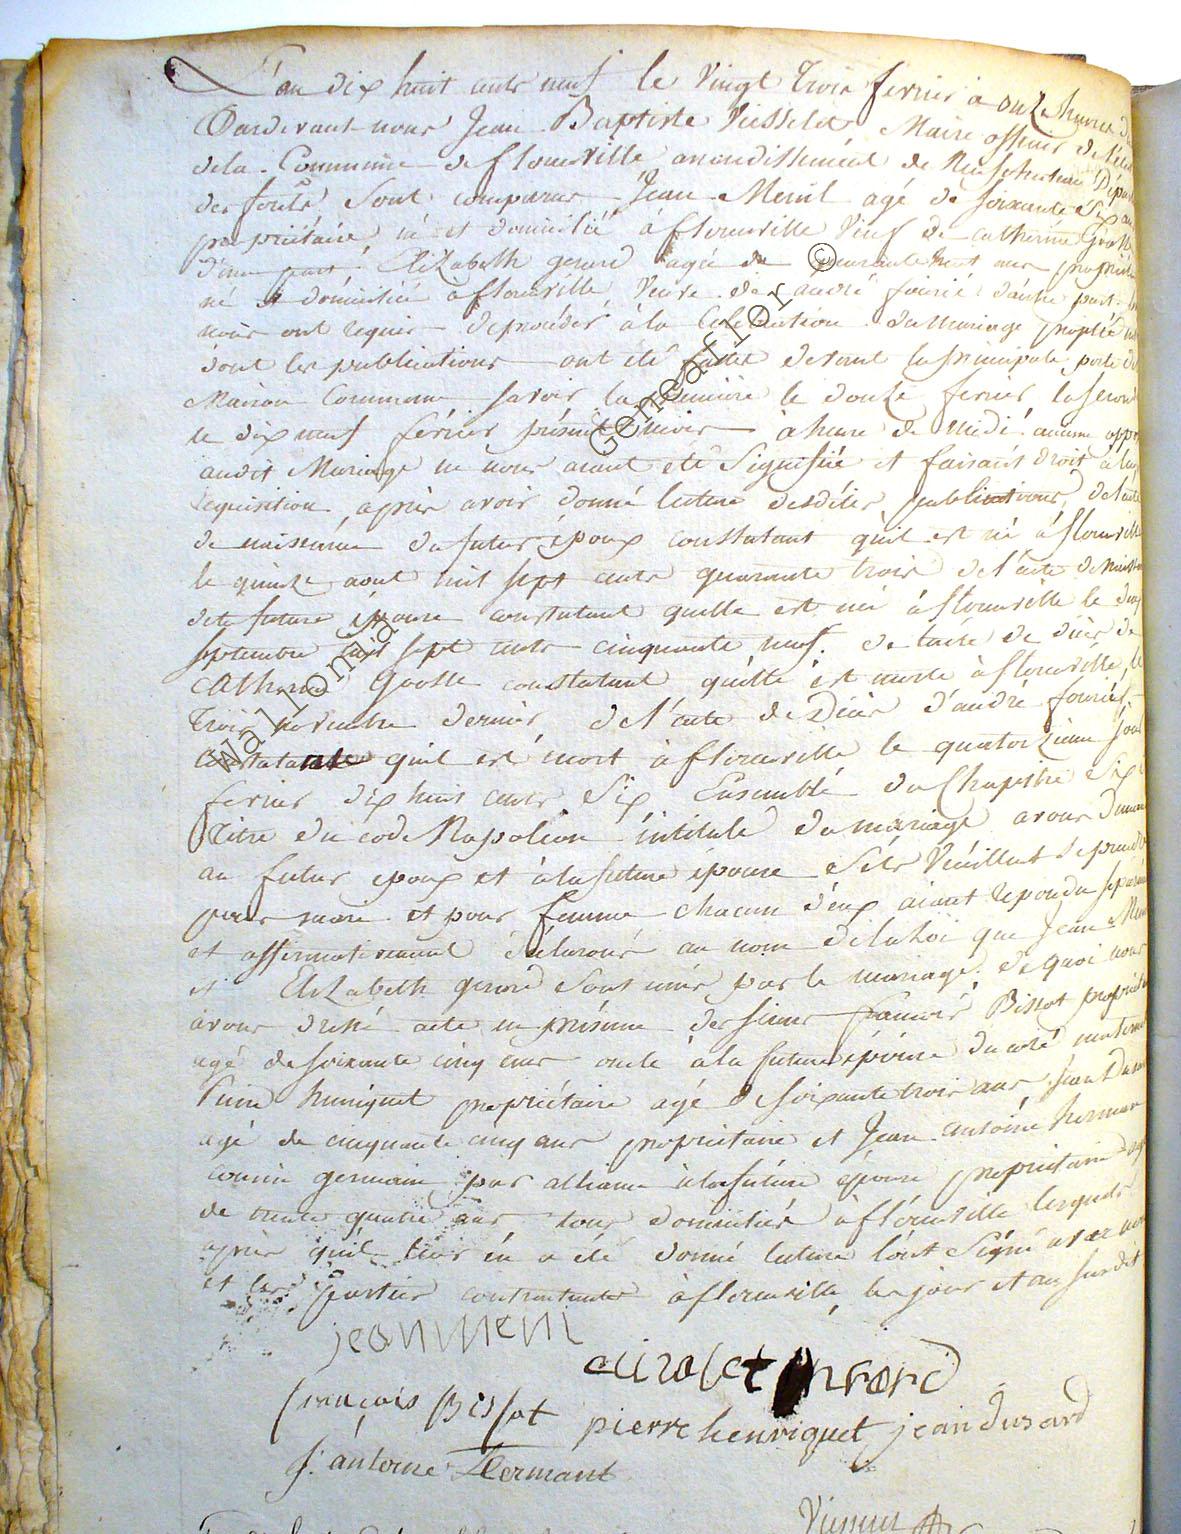 L'an dix huit cents neuf le vingt trois fevrier a onze heures du
Pardevant nous Jean Baptiste Maire officier de l'etat
dela Commune de florenville arrondissement de Neufchateau Depar
des forets Sont comparus Jean Menil agé de soixante Six ans
propriétaire né et domicilié à florenville Veuf de catherine Goosse
d'une part. Elizabeth gerard agée de quarante neuf ans propriétaire
né et domiciliée a florenville Veuve de andré fourié d'autre part
nous ont requis de procéder à la Celebration du Mariage projetté
dont les publications ont été faites devant la principale porte de
Maison Commune savoir la premiere le douze fevrier la seconde
le dix neuf février présent mois à heure de midi aucune oppo
audit Mariage ne nous aiant été Signifiée et faisant droit à leur
requisition après avoir donné lecture desdites publications, de l'acte
de naissance du futur époux constatant qu'il est né à florenville
le quinze aout mil sept cents quarante trois de l'acte de naissan
de la future épouse constatant quelle est née à florenville le
septembre mil sept cents cinquante neuf. de l'acte de décès de
Catherine Goosse constatant quelle est morte à florenville, le
Trois novembre dernier, de l'acte de Décès d'andré fourier
constatant quil est mort à florenville le quatorzieme jour
fevrier dix huit cents Six Ensemble du Chapitre Six
Titre du code Napoléon intitulé du mariage avons Demandé
au futur epoux et à la future épouse S'ils Veuillent se prendre
pour mari et pour femme chacun d'eux aiant repondu séparément
et affirmativement déclarons au nom de la Loi que Jean Menil
et Elizabeth gerard Sont unis par le mariage. de quoi nous
avons dressé acte en présence des sieurs francois Bissot propriétaire
agé de soixante cinq ans oncle à la future épouse du coté maternel
Pierre henriquet propriétaire agé de soixante trois ans jean Dusard
agé de cinquante cinq ans propriétaire et Jean antoine hermant
cousin germain par alliance à la future épouse propriétaire agé
de trente quatre ans tous domiciliés à florenville lesquels
après qu'il leur en a été donné lecture l'ont Signé avec nous
et les parties contractantes à florenville les jour et an susdit
jean meni
françois Bissot pierre henriquet jean dusard
j: antoine Hermant
© Geneaflor
Wallonia